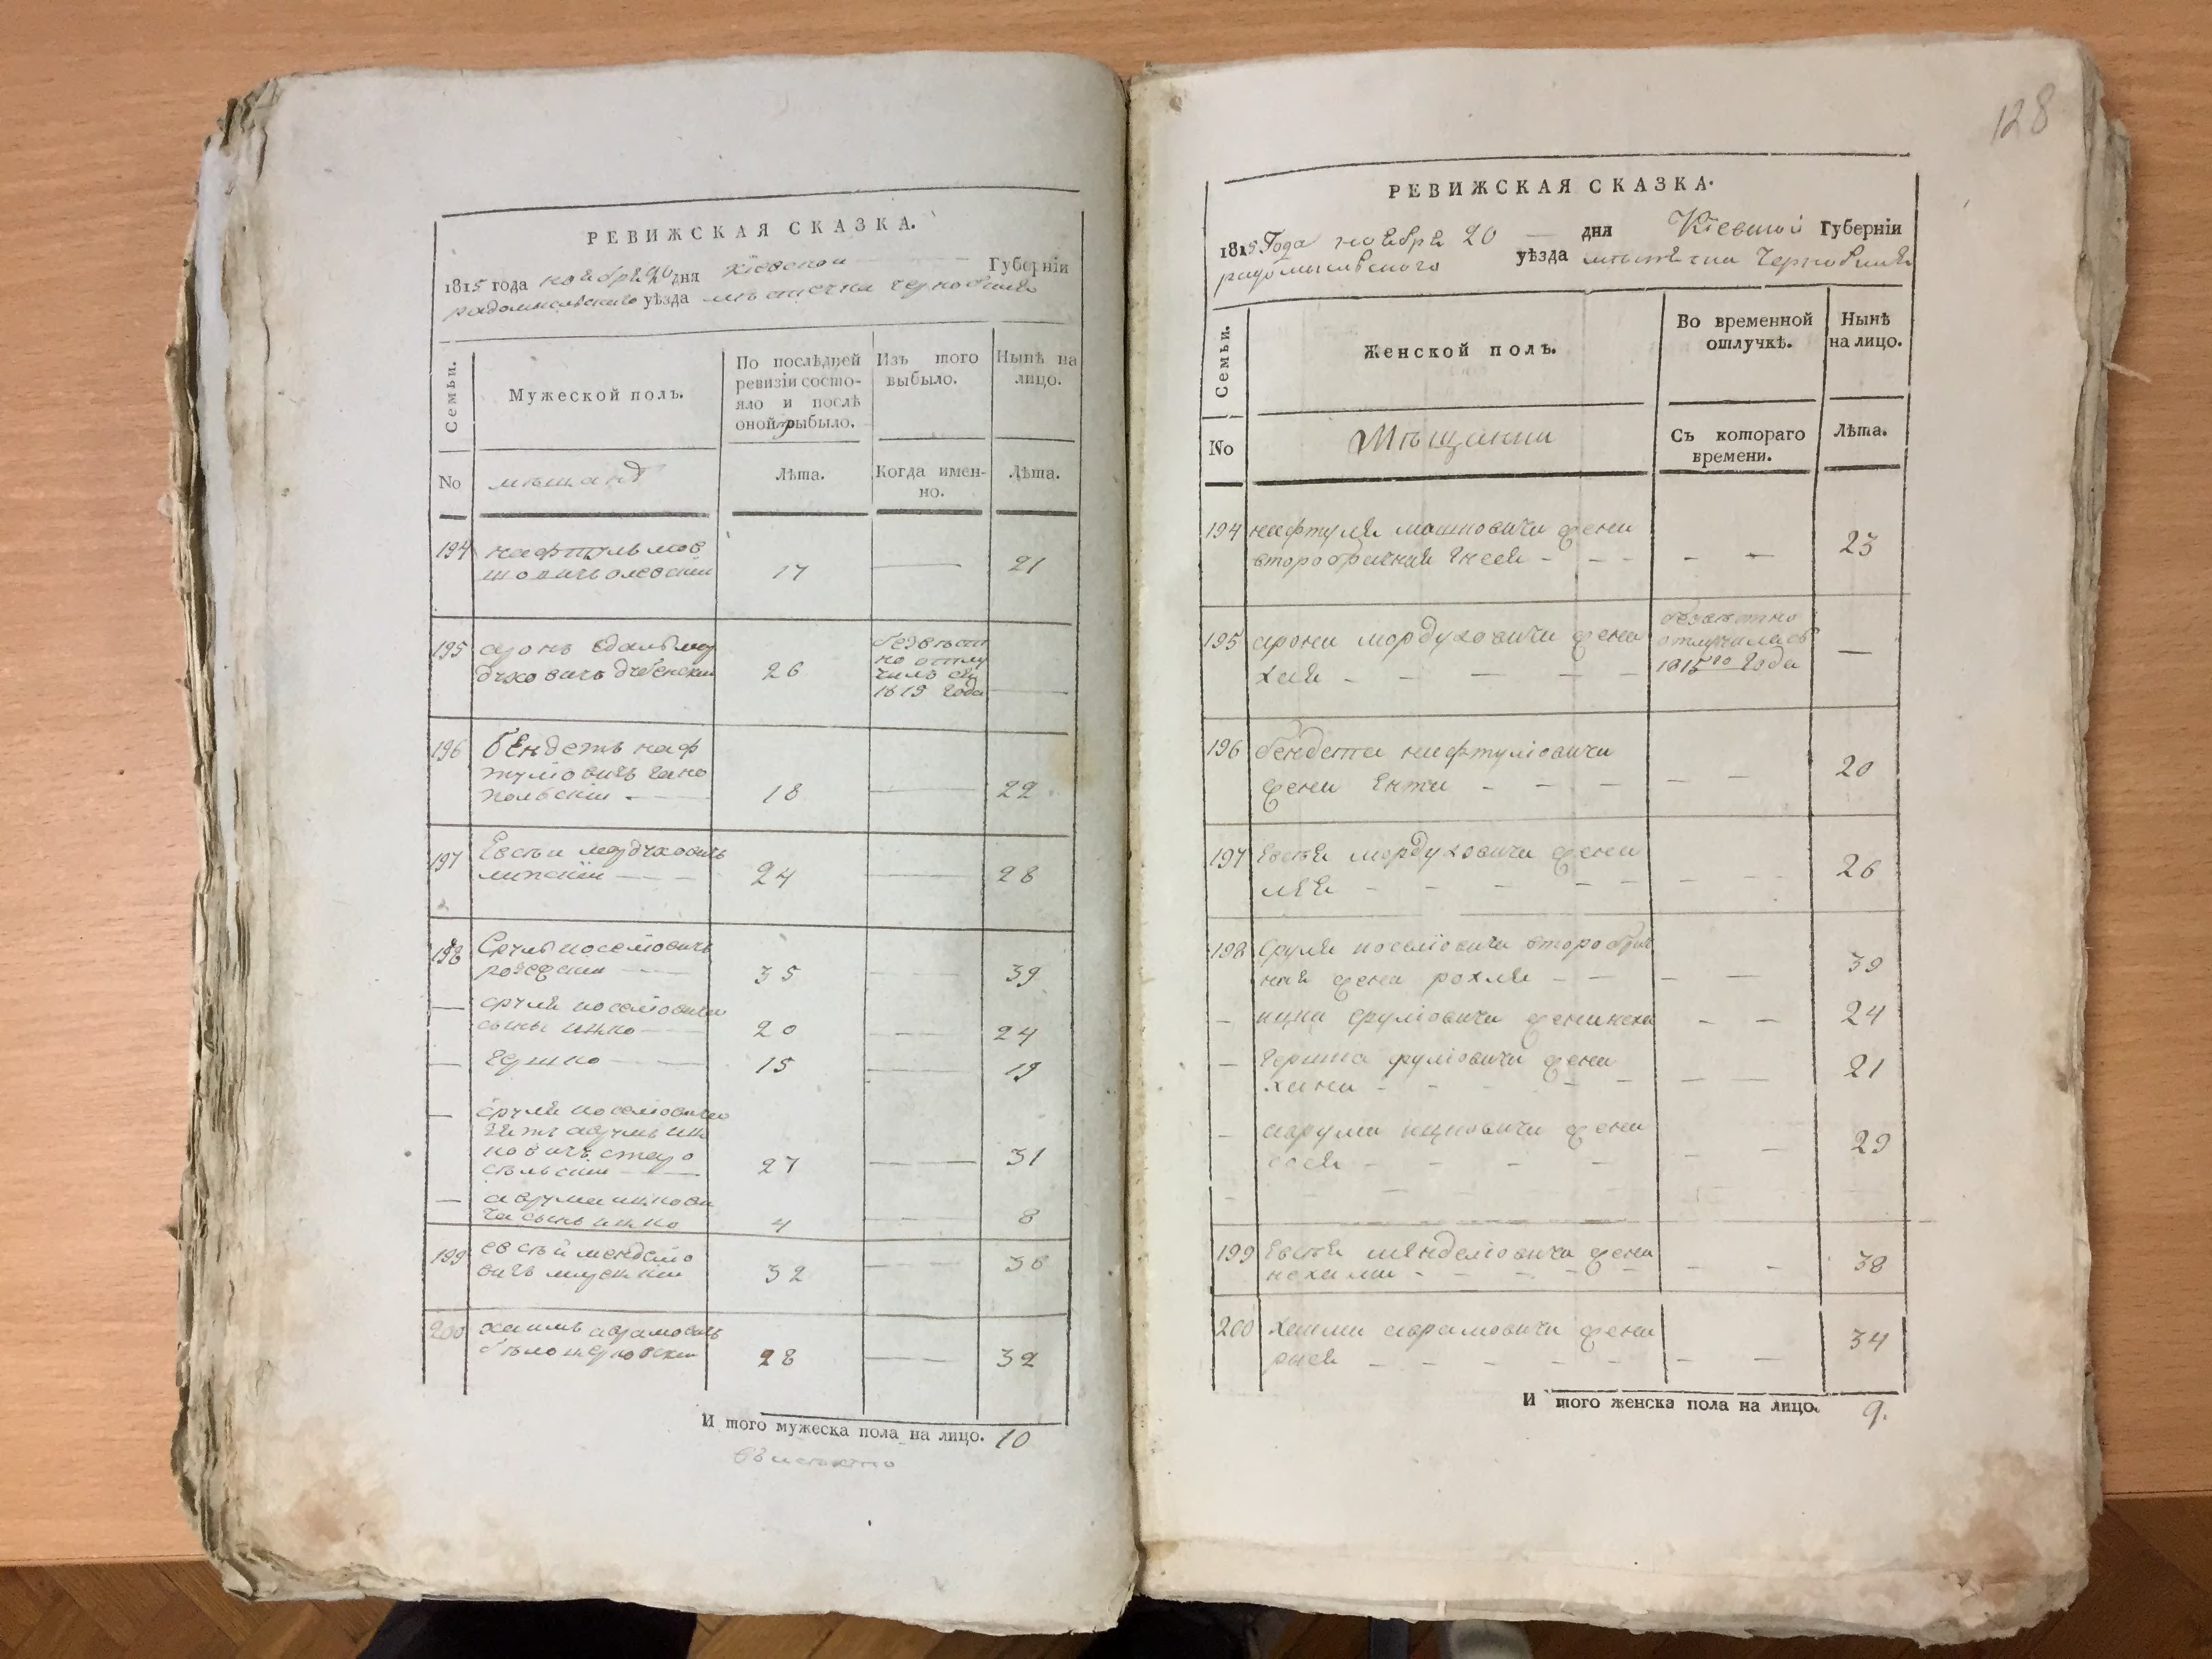 РЕВИЖСКАЯ СКАЗКА.
1815 года ноября 20 дня Кіевской Губерніи
радомысльского уѣзда мѣстечка чернобыля
Семьи.
Мужеской полъ.
По послѣдней
ревизіи состо-
яло и послѣ
оной прибыло.
Изъ того
выбыло.
Нынѣ на
лицо.
No
мещанъ
Лѣта.
Когда имен-
но.
Лѣта.
194 нафтуль мов
шовичъ олевскии 17 — 21
195 аронъ мор
духовичъ 26
безвѣст
но отлу
чилъся
1815 года —
196 бендетъ наф
туліовичъ
польскіи — 18 — 22
197 Евсѣи мордуховичъ
липскіи — 24 — 28
198 Сруль иоселіовичъ
— 35 — 39
— сруля иоселіовича
сыны ицко — 20 — 24
— гершко — 15 — 19
— сруля иоселіовича
зять аврумъ иц
ковичъ старо
сельскіи — 27 — 31
— аврума ицкови
ча сынъ ицко 4 — 8
199 евсѣй менделіо
вичъ 32 — 36
200 хаимъ аврамовичъ
28 — 32
И того мужеска пола на лицо. 10
128
РЕВИЖСКАЯ СКАЗКА.
1815 Года ноября 20 — дня Кіевской Губерніи
радомысльского уѣзда мѣстечка Чернобыля
Семьи.
Женской полъ.
Во временной
отлучкѣ.
Нынѣ
на лицо.
No
Мѣщанки
Съ котораго
времени.
Лѣта.
194 нафтуля мошковича жена
второбрачная Гнеся - - - - — 23
195 арона мордуховича жена
хая - — — — —
безвѣстно
отлучилась
1815го года —
196 бендета нафтуліовича
жена Ента - - - — — — 20
197 Евсѣя мордуховича жена
лѣя - - - - - - - 26
198 Сруля иоселіовича второбрач
ная жена рохля - - — — 39
— ицка сруліовича жена — — 24
— Гершка сруліовича жена
хана - - - - - — — 21
- аврума ицковича жена
сося - - - - - - 29
199 Евсѣя менделіовича жена
нехама - - - - - - - 38
200 хаима аврамовича жена
рися - - - - - - - — 34
И того женска пола на лицо. 9.